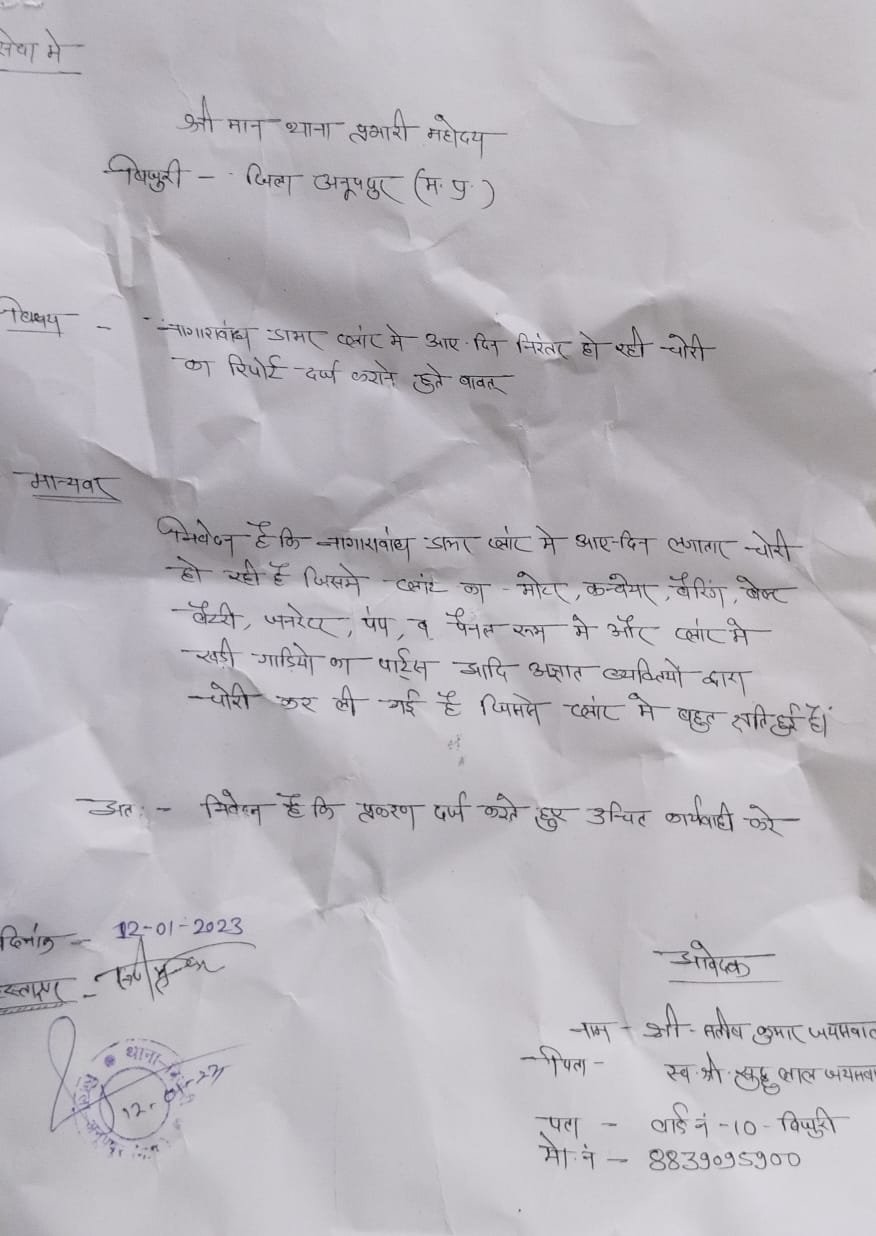 सेवा मे
श्री मान थाना प्रभारी महोदय
बिजुरी - जिला अनूपपुर (म. प्र.)
विषय - नागाराबांध डामर प्लांट मे आए दिन निरंतर हो रही चोरी
का रिपोर्ट दर्ज कराने हुते बावत्
मान्यवर
निवेदन है कि नागाराबांध डामर प्लांट मे आए-दिन लगातार चोरी
हो रही है जिसमे प्लांट का मोटर, कन्वेयर, बैरिंग, बेल्ट
बैटरी, जनरेटर, पंप, व पैनल रूम मे और प्लांट मे
खड़ी गाड़ियो का पार्ट्स आदि अज्ञात व्यक्तियो द्वारा
चोरी कर ली गई है जिससे प्लांट मे बहुत क्षति हुई है।
अतः - निवेदन है कि प्रकरण दर्ज करते हुए उचित कार्यवाही करे
दिनांक - 12-01-2023
हस्ताक्षर -
थाना
12-01-23
आवेदक
नाम - श्री कुमार जयसवाल
पिता - स्व. श्री लाल जयसवा
पता - वार्ड नं - 10 - बिजुरी
मो. नं - 8839095900